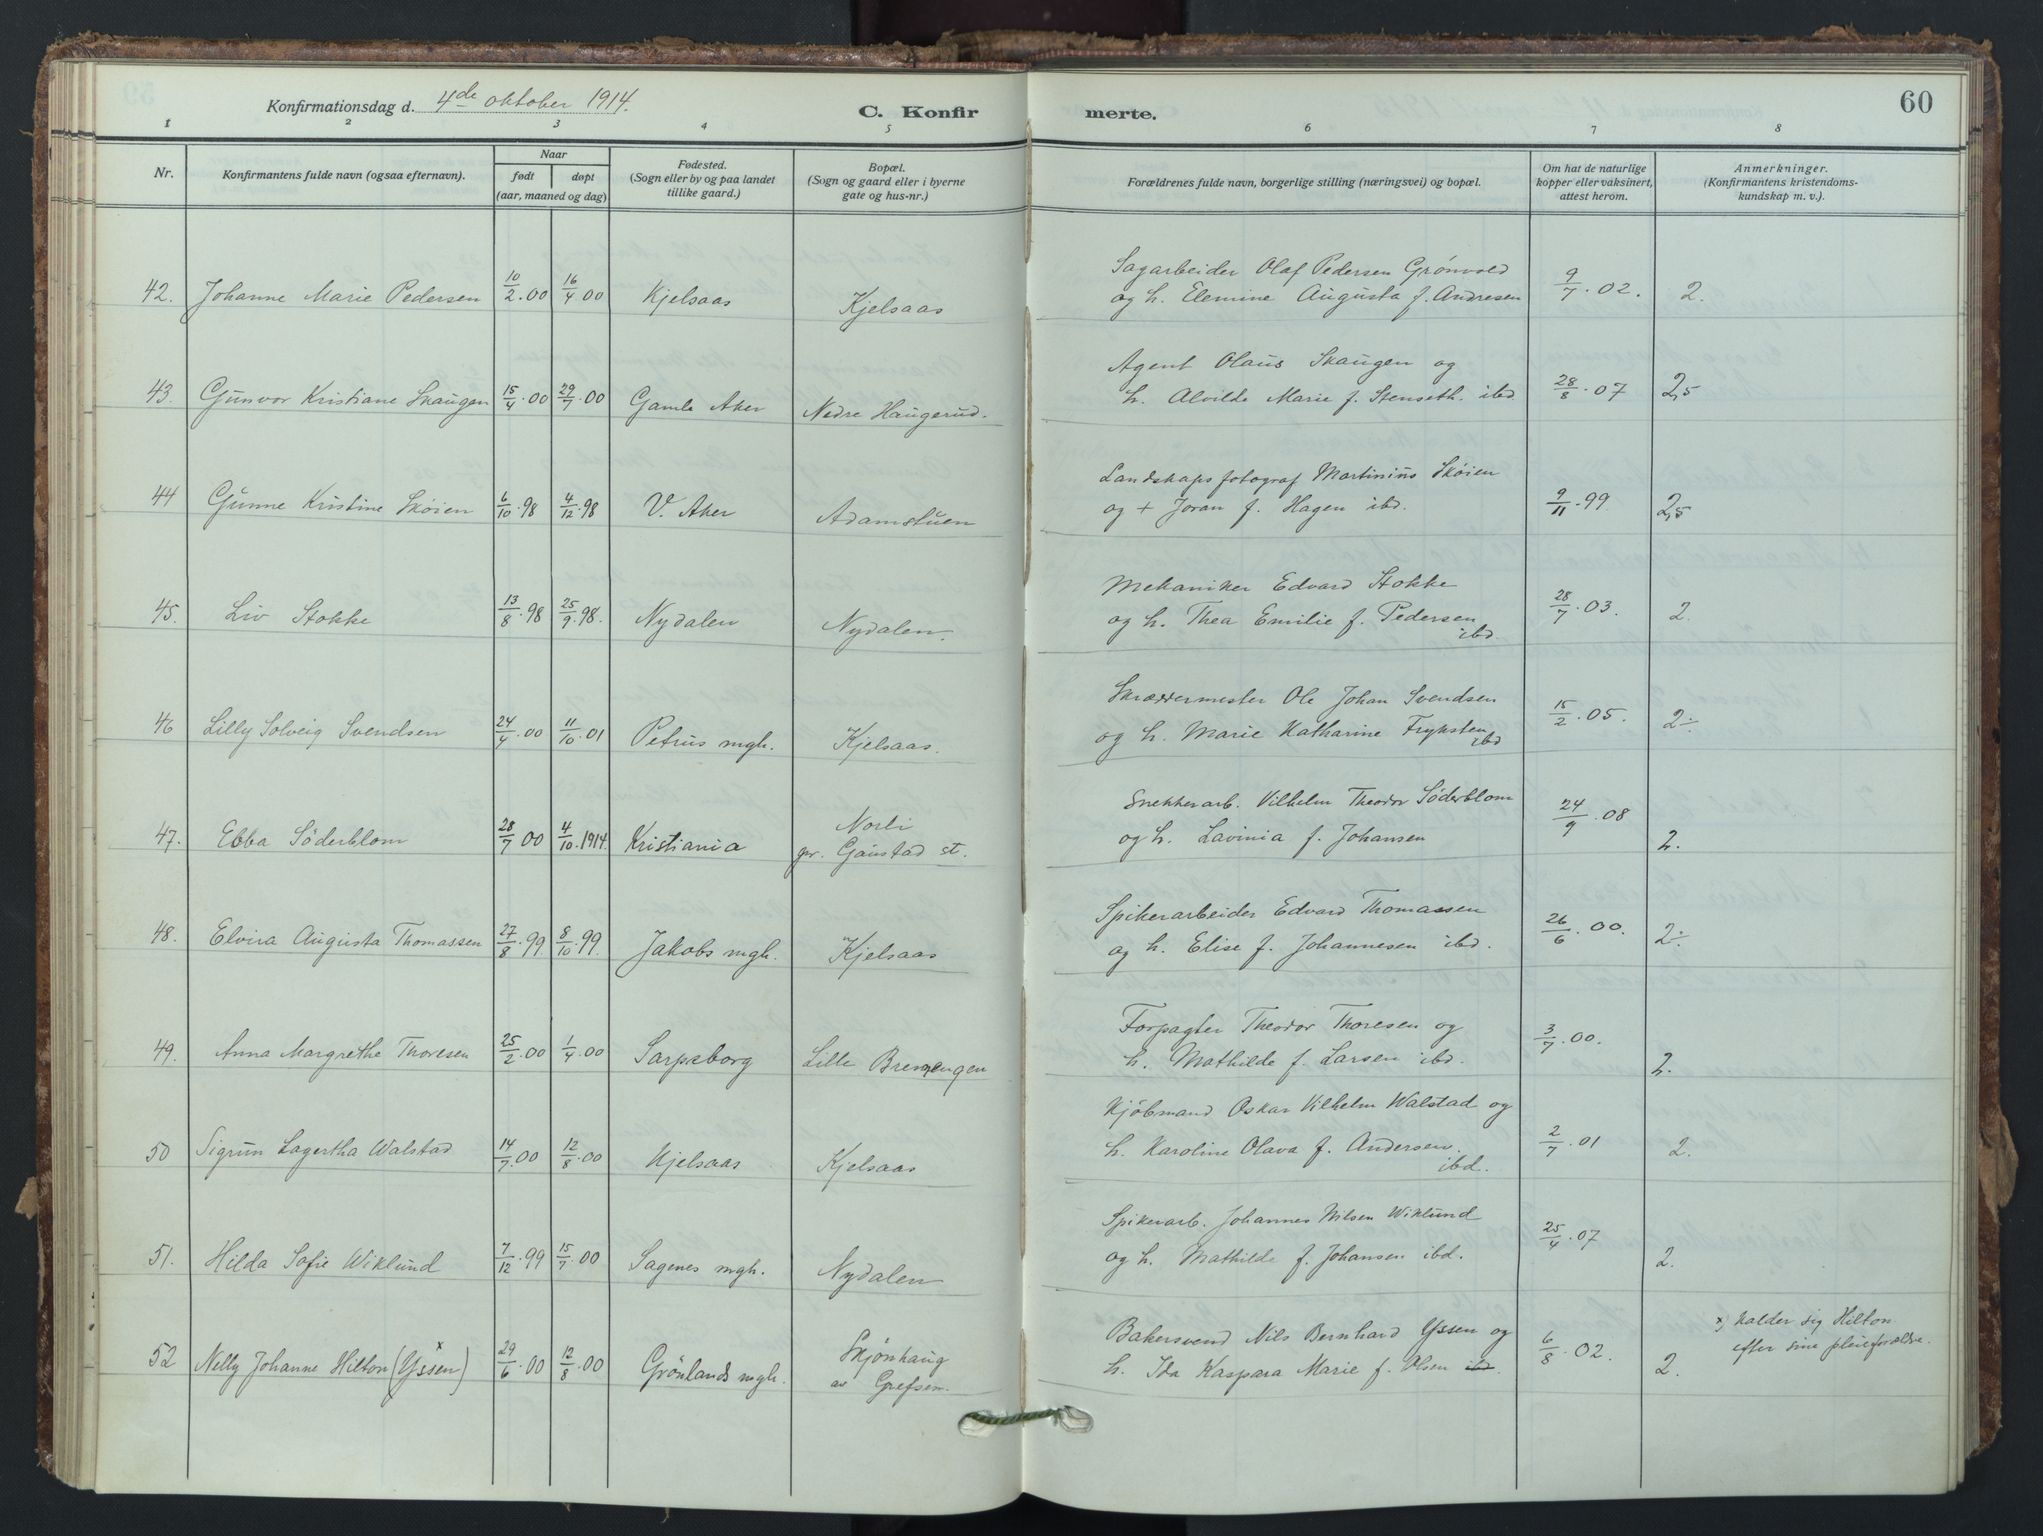 Konfirmationsdag d. 4de oktober 1914.
C. Konfirmerte.
60
1 2 3 4 5 6 7 8
Nr.
Konfirmantens fulde navn (ogsaa efternavn).
Naar
født døpt
(aar, maaned og dag)
Fødested.
(Sogn eller by og paa landet
tillike gaard.)
Bopæl.
(Sogn og gaard eller i byerne
gate og hus-nr.)
Forældrenes fulde navn, borgerlige stilling (næringsvei) og bopæl.
Om hat de naturlige
kopper eller vaksinert,
attest herom.
Anmerkninger.
(Konfirmantens kristendoms-
kundskap m. v.).
42. Johanne Marie Pedersen 10/2.00 16/4 00 Kjelsaas Kjelsaas
Sagarbeider Olaf Pedersen Grønvold
og h. Elemine Augusta f. Andresen 9/7.02. 2.
43. Gunvor Kristiane Skaugen 15/4.00 29/7.00 Gamle Aker Nedre Haugerud.
Agent Olaus Skaugen og
h. Alvilde Marie f. Stenseth. ibd. 28/8.07 2,5
44 Gunne Kristine Skøien 6/10.98 4/12.98 V. Aker Adamstuen
Landskapsfotograf Martinius Skøien
og + Joran f. Hagen ibd. 9/11.99. 2,5
45. Liv Stokke 13/8.98 25/9.98. Nydalen Nydalen.
Mekaniker Edvard Stokke
og h. Thea Emilie f. Pedersen
ibd. 28/7.03. 2.
46 Lilly Solveig Svendsen 24/4.00 11/10.01 Petrus mgh. Kjelsaas.
Skræddermester Ole Johan Svendsen
og h. Marie Katharine Fryksten
ibd 15/2.05. 2÷
47. Ebba Søderblom 28/7 00 4/10.1914. Kristiania Norli
pr. Gaustad st.
Snekkerarb. Vilhelm Theodor Søderblom
og h. Lavinia f. Johansen 24/9.08 2.
48. Elvira Augusta Thomassen 27/8.99 8/10.99. Jakobs mgh. Kjelsaas
Spikerarbeider Edvard Thomassen
og h. Elise f. Johannesen ibd. 26/6.00. 2÷
49. Anna Margrethe Thoresen 25/2.00 1/4.00 Sarpsborg Lille Brenengen
Forpagter Theodor Thoresen og
h. Mathilde f. Larsen ibd. 3/7.00. 2.
50 Sigrun Lagertha Walstad 14/7.00 12/8.00 Kjelsaas Kjelsaas
Kjøbmand Oskar Vilhelm Walstad og
h. Karoline Olava f. Andersen.
ibd. 2/7.01 2.
51. Hilda Sofie Wiklund 7/12.99 15/7.00 Sagenes mgh. Nydalen
Spikerarb. Johannes Nilsen Wiklund
og h. Mathilde f. Johansen ibd. 25/4.07 2.
52 Nelly Johanne Hilton (Yssen)x 29/6.00 12/8.00 Grønlands mgh. Skjønhaug
av Grefsen.
Bakersvend Nils Bernhard Yssen og
h. Ida Kaspara Marie f. Olsen ibd. 6/8.02. 2.
x) kalder sig Hilton
efter sine pleieforældre.